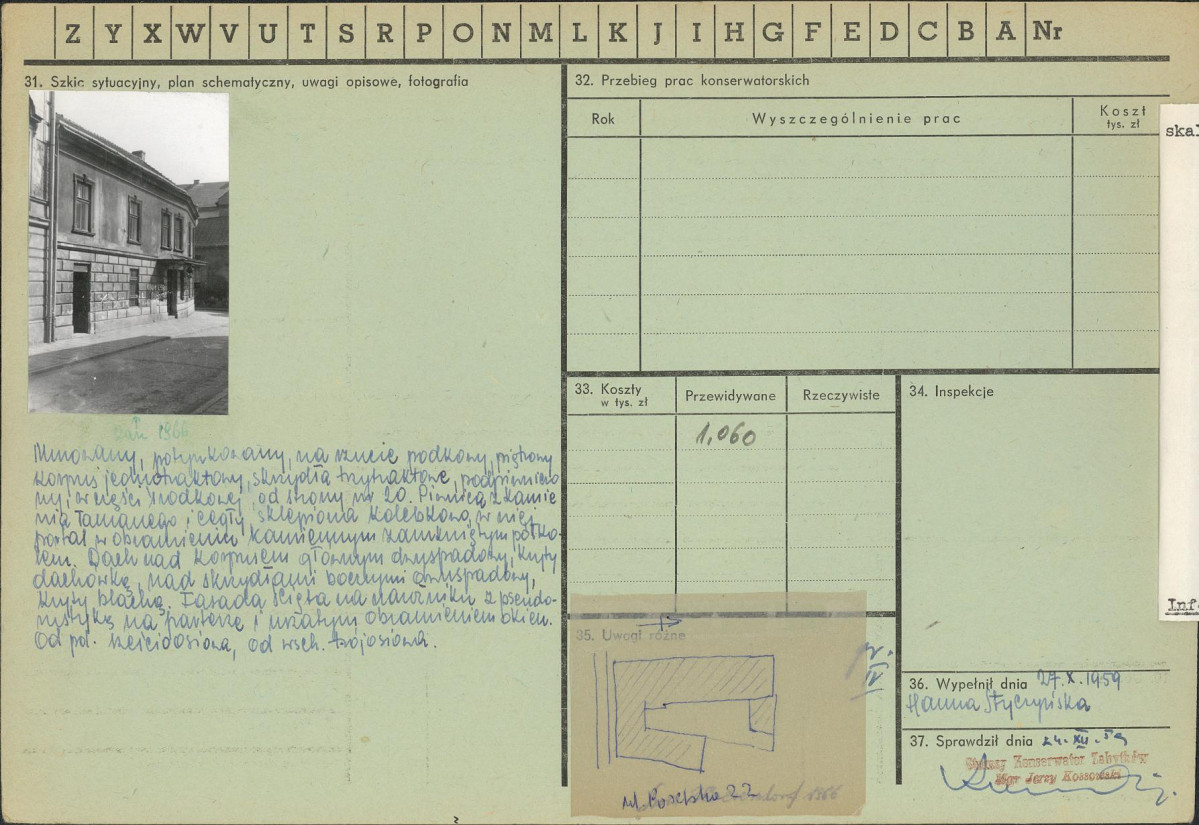 Z Y X W V U T S R P O N M L K J I H G F E D C B A Nr
31. Szkic sytuacyjny, plan schematyczny, uwagi opisowe, fotografia
1866
Murowany, potynkowany, na rzucie podkowy, piętrowy
korpus jednotraktowy, skrzydła trzytraktowe, podpiwniczo
ny, w części środkowej, od strony nr 20. Piwnica z kamie
nia łamanego i cegły, sklepiona kolebkowo, w niej
portal w obramieniu kamiennym zamkniętym półko-
lem. Dach nad korpusem głównym dwuspadowy, kryty
dachówką, nad skrzydłami bocznymi dwuspadowy,
kryty blachą. Fasada ścięta na narożniku z pseudo-
rustyką na parterze i uszatym obramieniem okien.
Od poł. sześcioosiowa, od wsch. trójosiowa.
32. Przebieg prac konserwatorskich
Rok
Wyszczególnienie prac
Koszt
tys. zł
skal
33. Koszty
w tys. zł
Przewidywane
Rzeczywiste
1,060
34. Inspekcje
Inf.
35. Uwagi różne
ul. Poselska 22
1966
36. Wypełnił dnia 27.X.1959
Hanna Styczyńska
37. Sprawdził dnia 24.XII.59
Konserwator Zabytków
Mgr Jerzy Kossowski